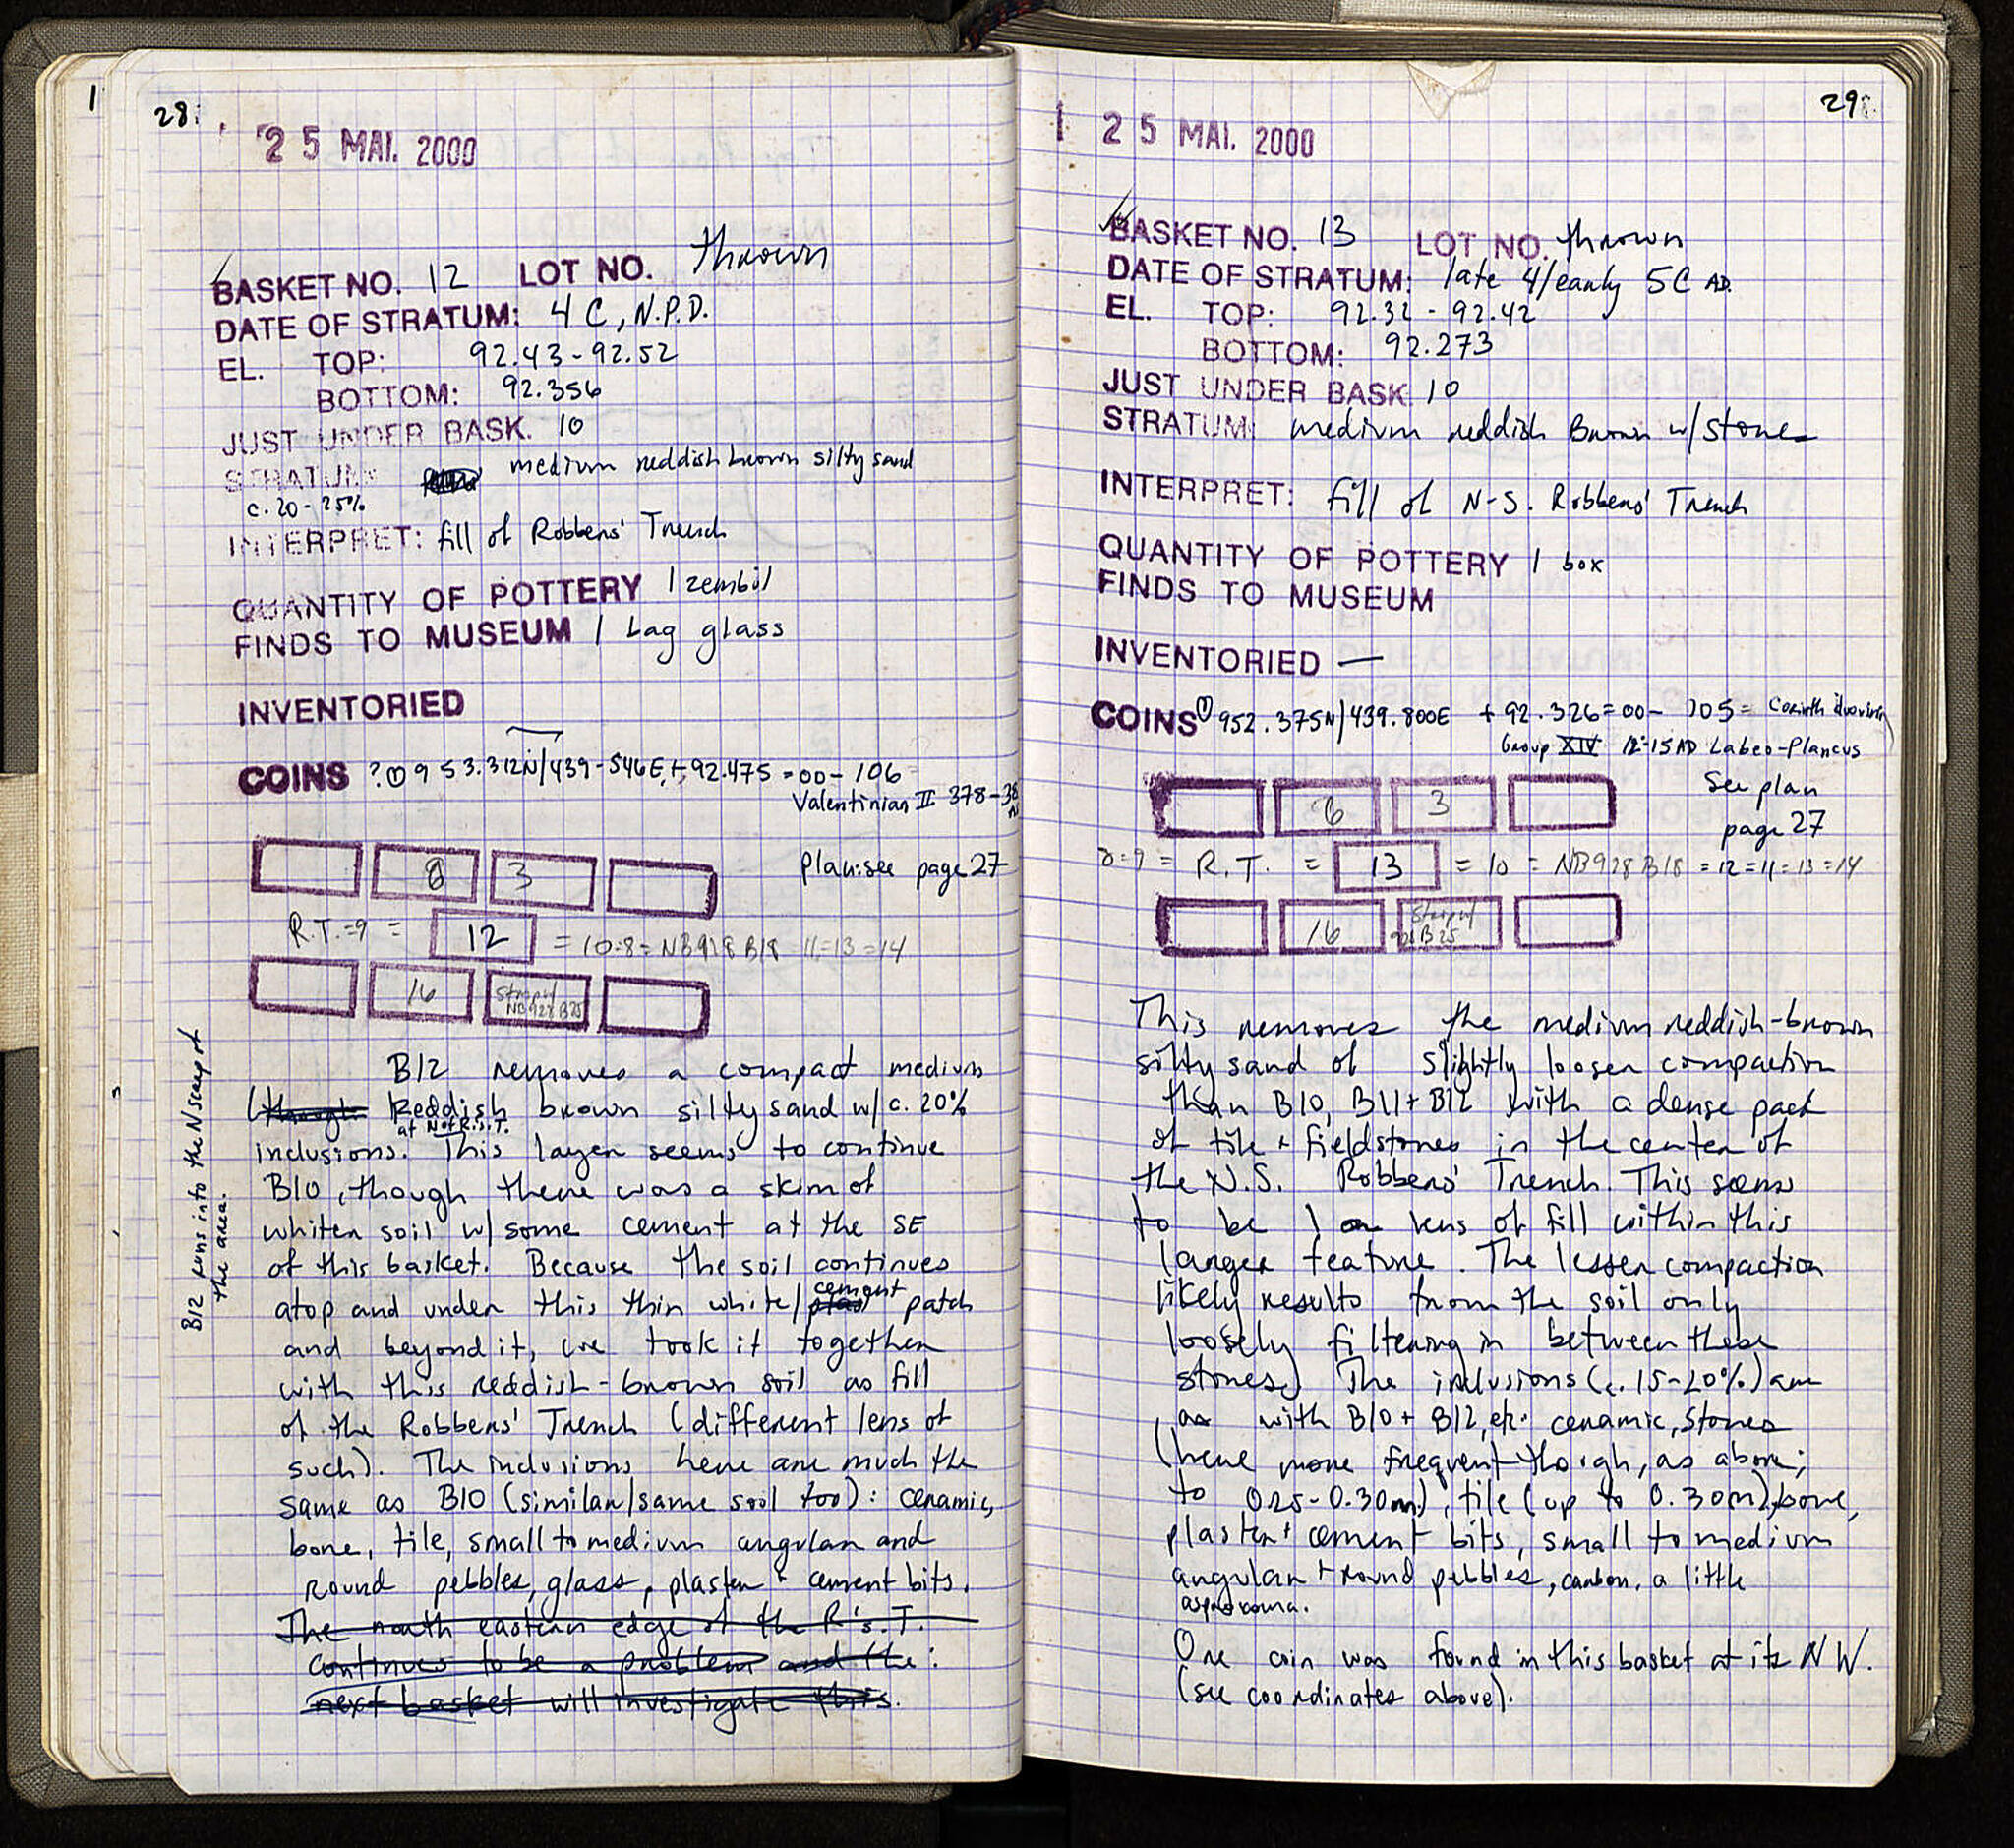 1
28
25 MAI. 2000
BASKET NO. 12 LOT NO. thrown
DATE OF STRATUM: 4 C, N.P.D.
EL. TOP: 92.43 - 92.52
BOTTOM: 92.356
JUST UNDER BASK. 10
STRATUM: medium reddish brown silty sand
c. 20-25%
INTERPRET: fill of Robbers' Trench
QUANTITY OF POTTERY 1 zembil
FINDS TO MUSEUM 1 bag glass
INVENTORIED
COINS ? ① 953.312N/439-546E, + 92.475 = 00-106
Valentinian II 378-
8 3
plan: see page 27
R.T. = 9 = 12 = 10=8= NB928 B18 = 11=13=14
16 Strip w/ NB928 B25
B12 removes a compact medium
(though Reddish brown silty sand w/ c. 20%
at N of R.s.T.
inclusions. This layer seems to continue
B10, though there was a skim of
whiter soil w/ some cement at the SE
of this basket. Because the soil continues
atop and under this thin white/cement patch
and beyond it, we took it together
with this reddish-brown soil as fill
of the Robbers' Trench (different lens of
such). The inclusions here are much the
same as B10 (similar/same soil too): ceramic,
bone, tile, small to medium angular and
round pebbles, glass, plaster + cement bits.
The north eastern edge of the R's.T.
continues to be a problem and the
next basket will investigate this.
B12 runs into the N scarp of
the area.
29
25 MAI. 2000
BASKET NO. 13 LOT NO. thrown
DATE OF STRATUM: late 4/early 5C AD.
EL. TOP: 92.32 - 92.42
BOTTOM: 92.273
JUST UNDER BASK 10
STRATUM: medium reddish Brown w/ stones
INTERPRET: fill of N-S. Robbers' Trench
QUANTITY OF POTTERY 1 box
FINDS TO MUSEUM
INVENTORIED —
COINS ① 952.375N/439.800E + 92.326 = 00-105 = Corinth duoviri
Group XIV 12-15 AD Labeo-Plancus
6 3
See plan
page 27
8=9 = R.T. = 13 = 10 = NB928 B18 = 12=11=13=14
16 Strip w/ 928 B25
This removes the medium reddish-brown
silty sand of slightly looser compaction
than B10, B11 + B12 with a dense pack
of tile + fieldstones in the center of
the N.S. Robbers' Trench. This seems
to be 1 lens of fill within this
larger feature. The lesser compaction
likely results from the soil only
loosely filtering in between these
stones. The inclusions (c. 15-20%) are
as with B10 + B12, etc. ceramic, stones
(here more frequent though, as above;
to 0.25-0.30m), tile (up to 0.30m), bone,
plaster + cement bits, small to medium
angular + round pebbles, carbon, a little
asprocoma.
One coin was found in this basket at its NW.
(see coordinates above).